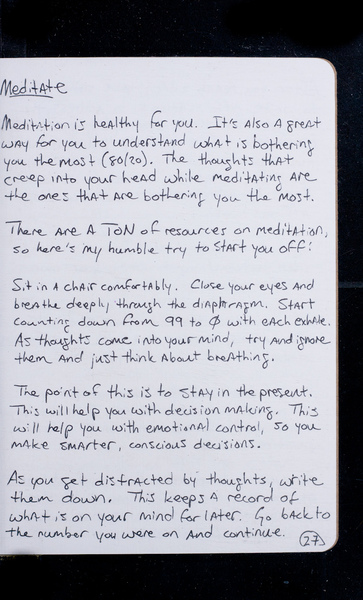 Meditate
Meditation is healthy for you. It's also a great
way for you to understand what is bothering
you the most (80/20). The thoughts that
creep into your head while meditating are
the ones that are bothering you the most.
There are a TON of resources on meditation,
so here's my humble try to start you off!
Sit in a chair comfortably. Close your eyes and
breathe deeply through the diaphragm. Start
counting down from 99 to 0 with each exhale.
As thoughts come into your mind, try and ignore
them and just think about breathing.
The point of this is to stay in the present.
This will help you with decision making. This
will help you with emotional control, so you
make smarter, conscious decisions.
As you get distracted by thoughts, write
them down. This keeps a record of
what is on your mind for later. Go back to
the number you were on and continue.
27